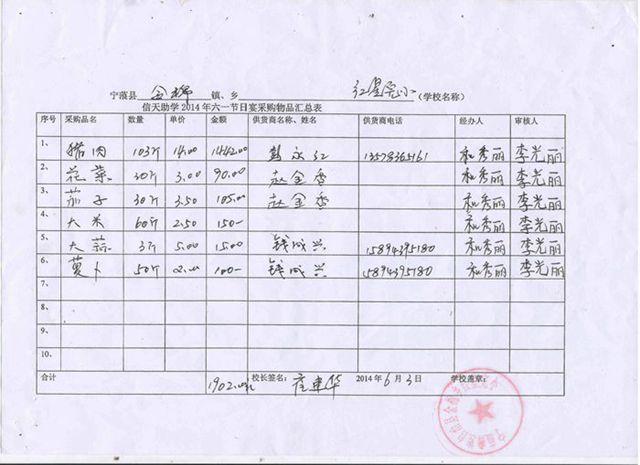 宁蒗县 金棉 镇、乡 红星完小 (学校名称)
信天助学2014年六一节日宴采购物品汇总表
序号 采购品名 数量 单价 金额 供货商名称、姓名 供货商电话 经办人 审核人
1、 猪肉 103斤 14.00 1442.00 13578365161 和秀丽 李光丽
2、 花菜 30斤 3.00 90.00 赵金香 和秀丽 李光丽
3、 茄子 30斤 3.50 105.00 赵金香 和秀丽 李光丽
4、 大米 60斤 2.50 150- 和秀丽 李光丽
5、 大蒜 3斤 5.00 15.00 钱成兴 15894395180 和秀丽 李光丽
6、 萝卜 50斤 2.00 100- 钱成兴 15894395180 和秀丽 李光丽
7、
8、
9、
10、
合计 1902.00元 校长签名: 2014年6月3日 学校盖章: